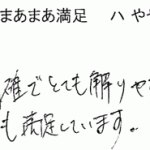 まあまあ満足 ハ やや
確でとても解りやす
も満足しています。